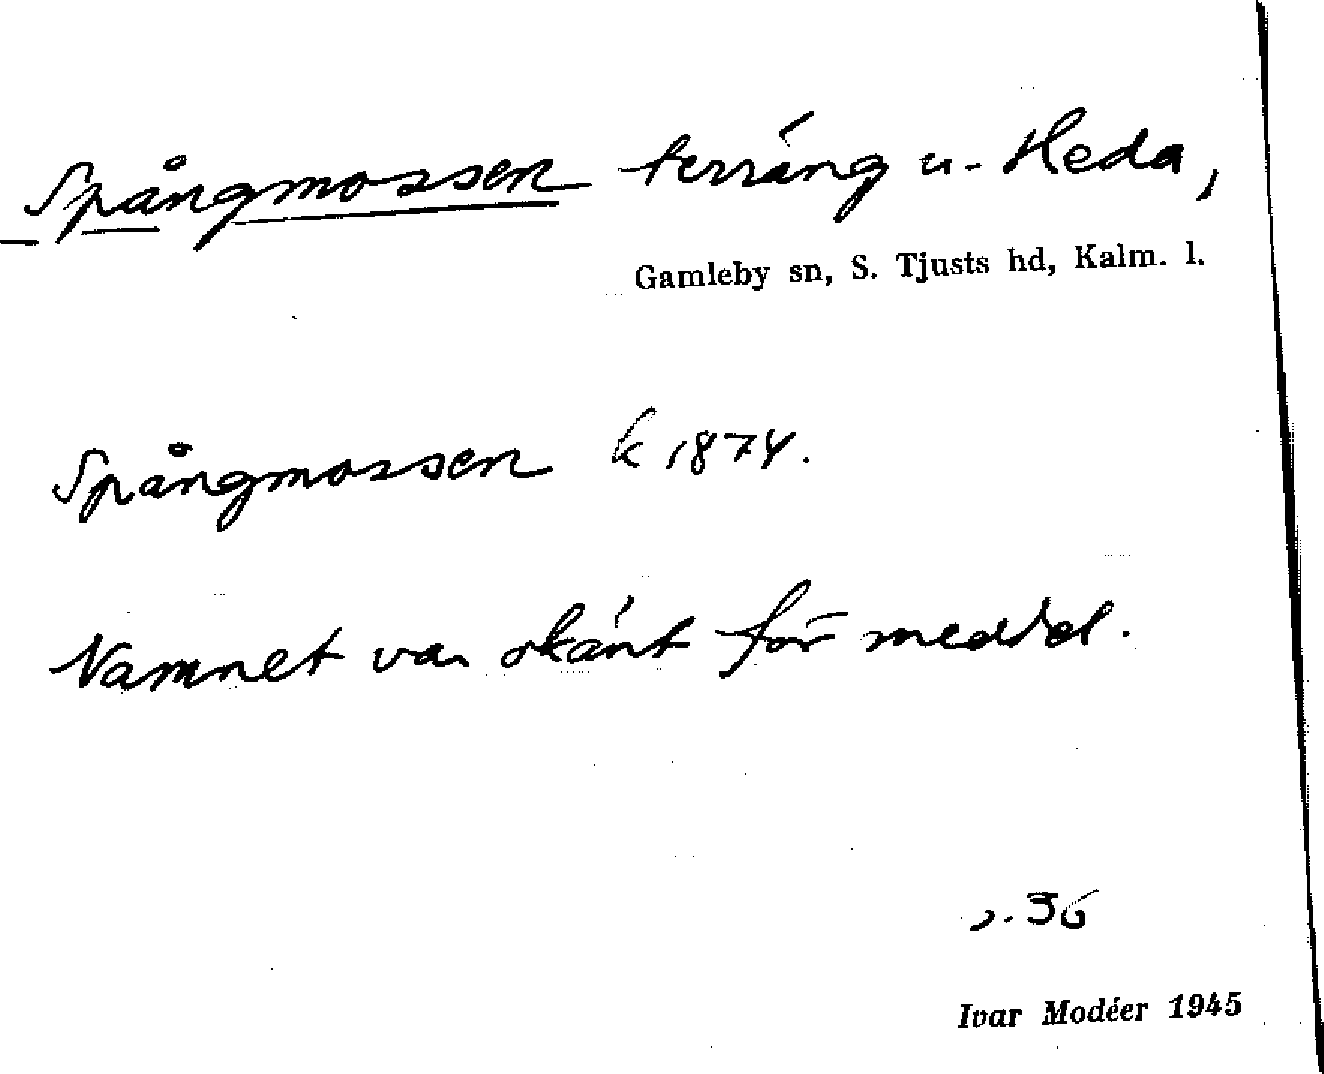 Spångmossen terräng u. Heda,
Gamleby sn, S. Tjusts hd, Kalm. l.
Spångmossen k 1874.
Namnet var okänt för meddel.
s. 36
Ivar Modéer 1945